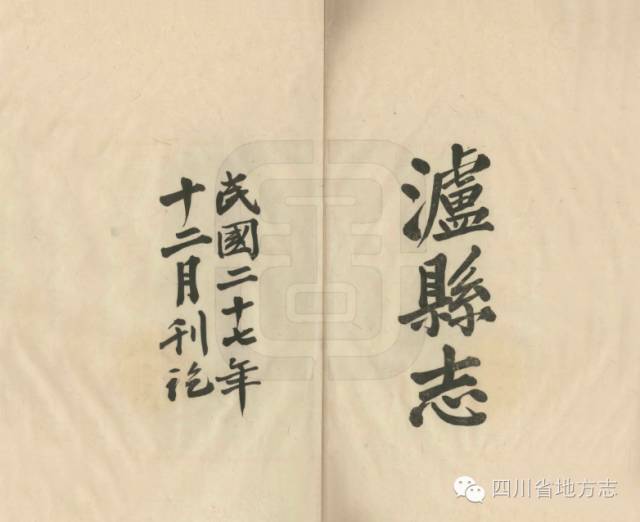 瀘縣志
民國二十七年
十二月刊訖
四川省地方志